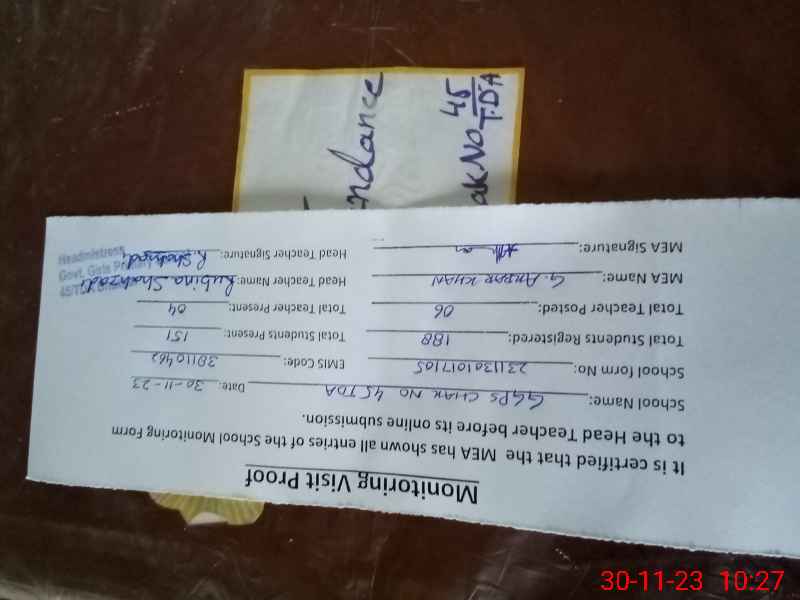 Monitoring Visit Proof
It is certified that the MEA has shown all entries of the School Monitoring Form
to the Head Teacher before its online submission.
School Name: GGPS CHAK NO 45 TDA Date: 30-11-23
School form No: 2311301017105 EMIS Code: 38110462
Total Students Registered: 188 Total Students Present: 151
Total Teacher Posted: 06 Total Teacher Present: 04
MEA Name: G. AKBAR KHAN Head Teacher Name: Rubina Shahzadi
MEA Signature: Head Teacher Signature: R. Shahzadi
Headmistress
Govt. Girls Primary
45/TDA
ndance
ak No 45
T.D.A
30-11-23 10:27